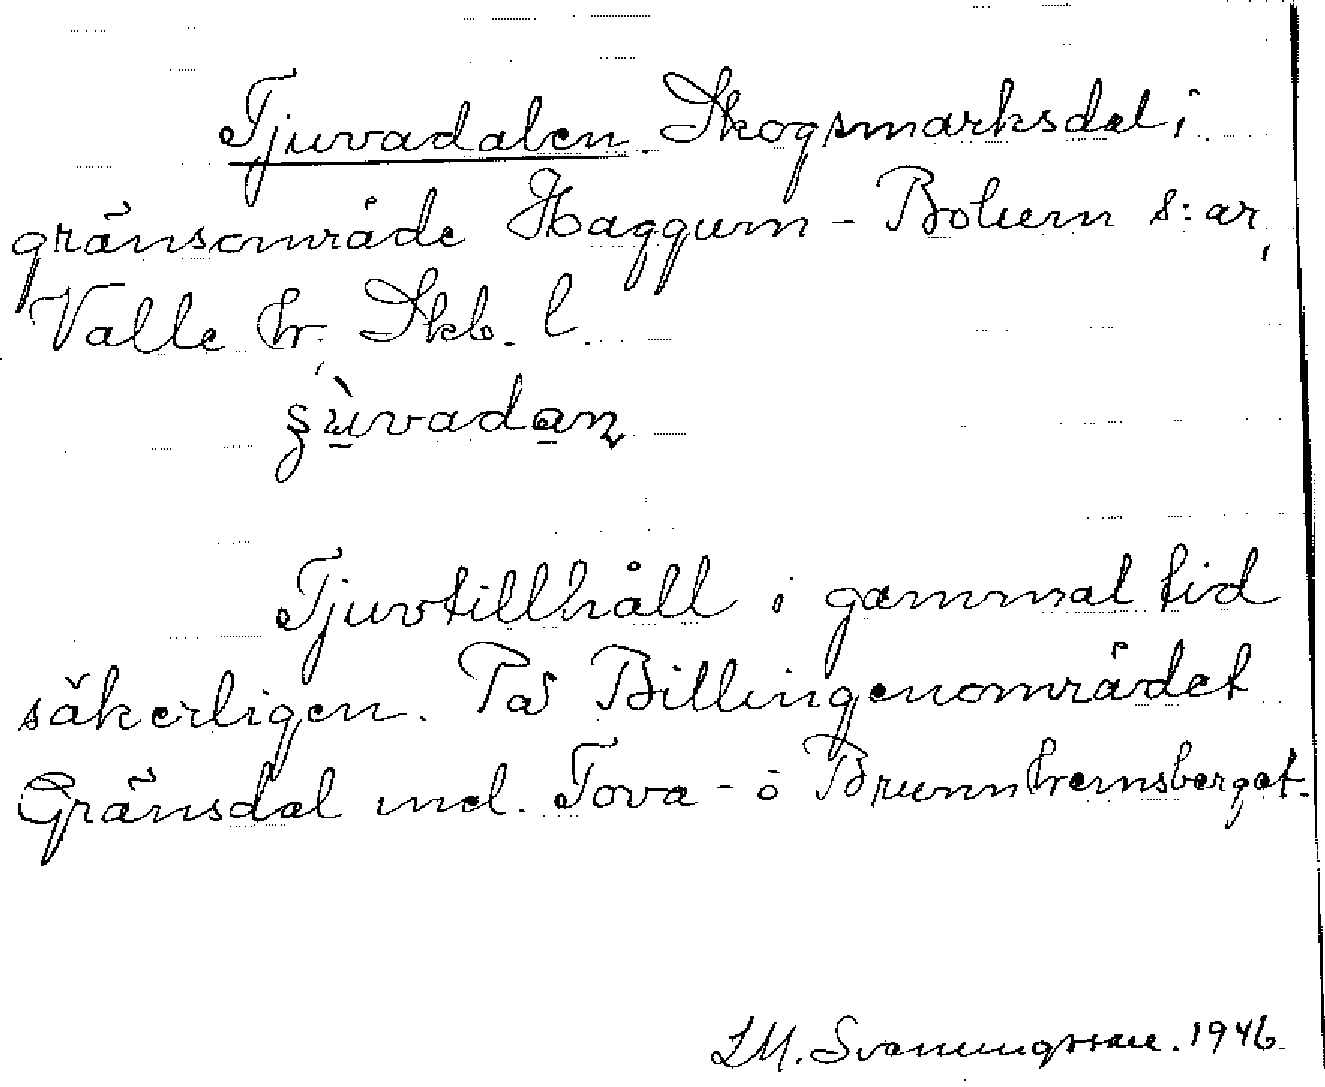 Tjuvadalen. Skogsmarksdal i
gränsområde Häggum - Bolum s:ar,
Valle hr, Skb. l.
Tjuvtillhåll i gammal tid
säkerligen. På Billingenområdet
Gränsdal mel. Tova- o Brunnhemsberget.
LM. Svanungsson. 1946